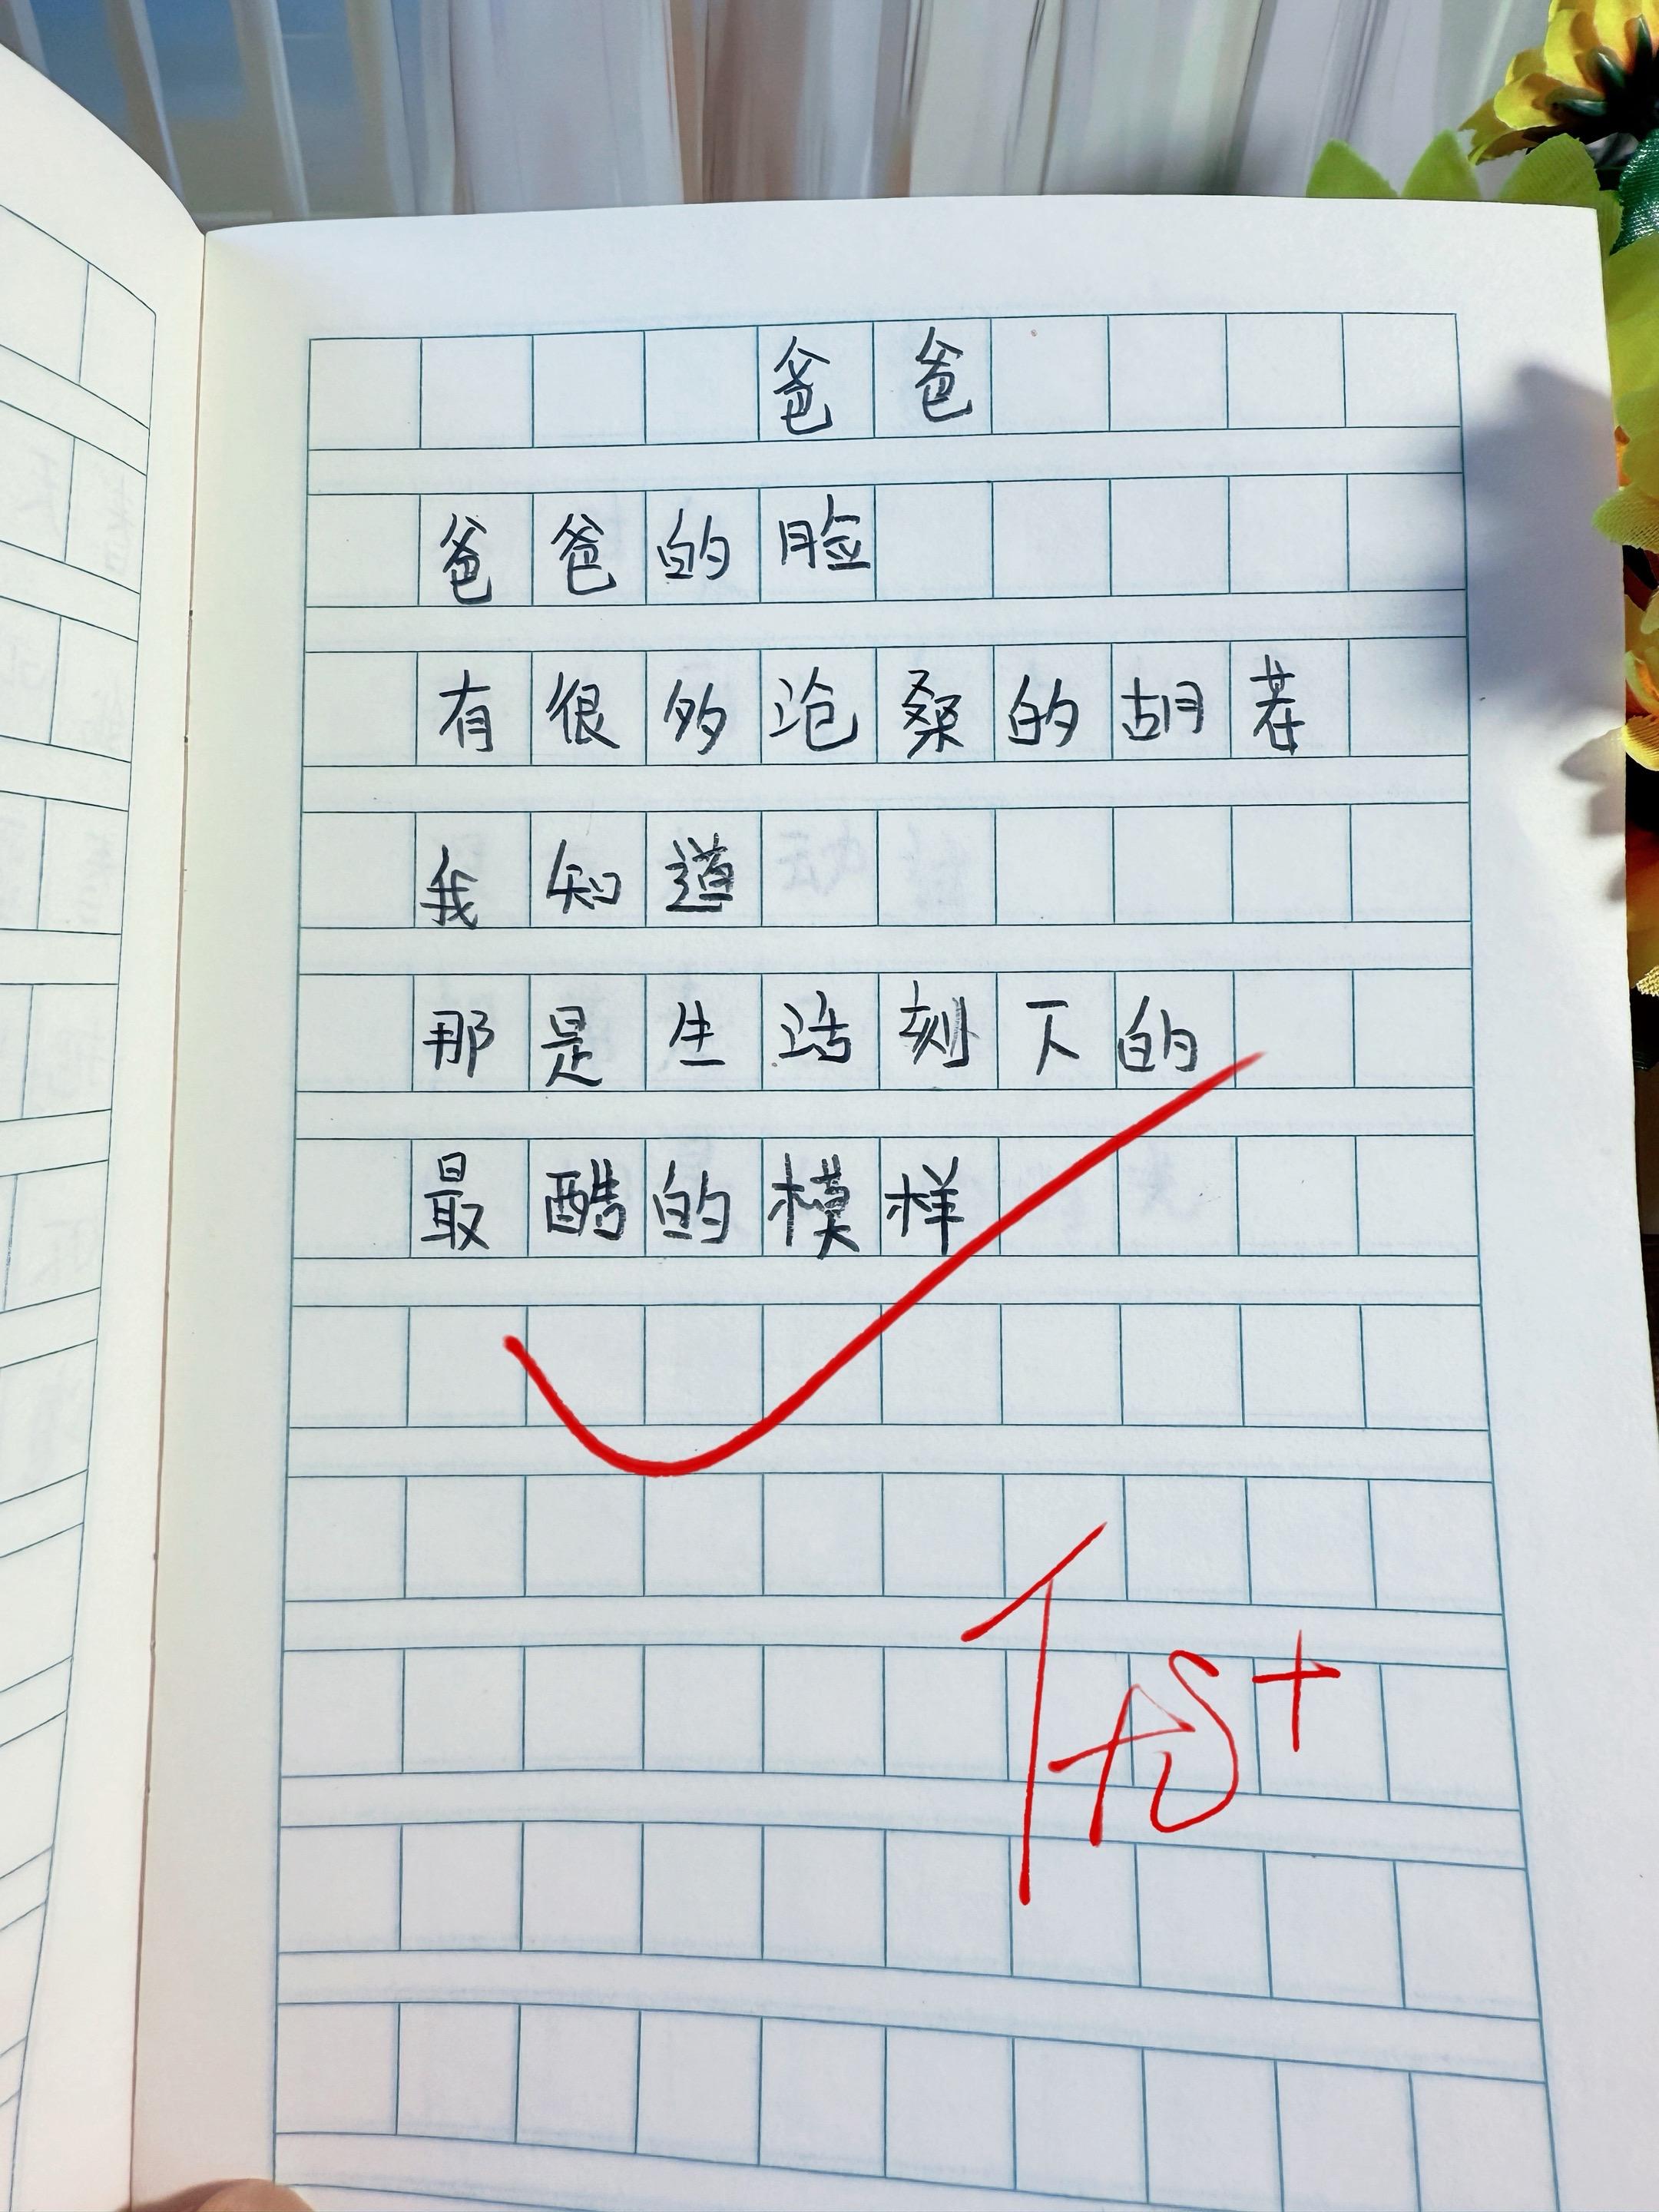 爸爸
爸爸的脸
有很多沧桑的胡茬
我知道
那是生活刻下的
最酷的模样